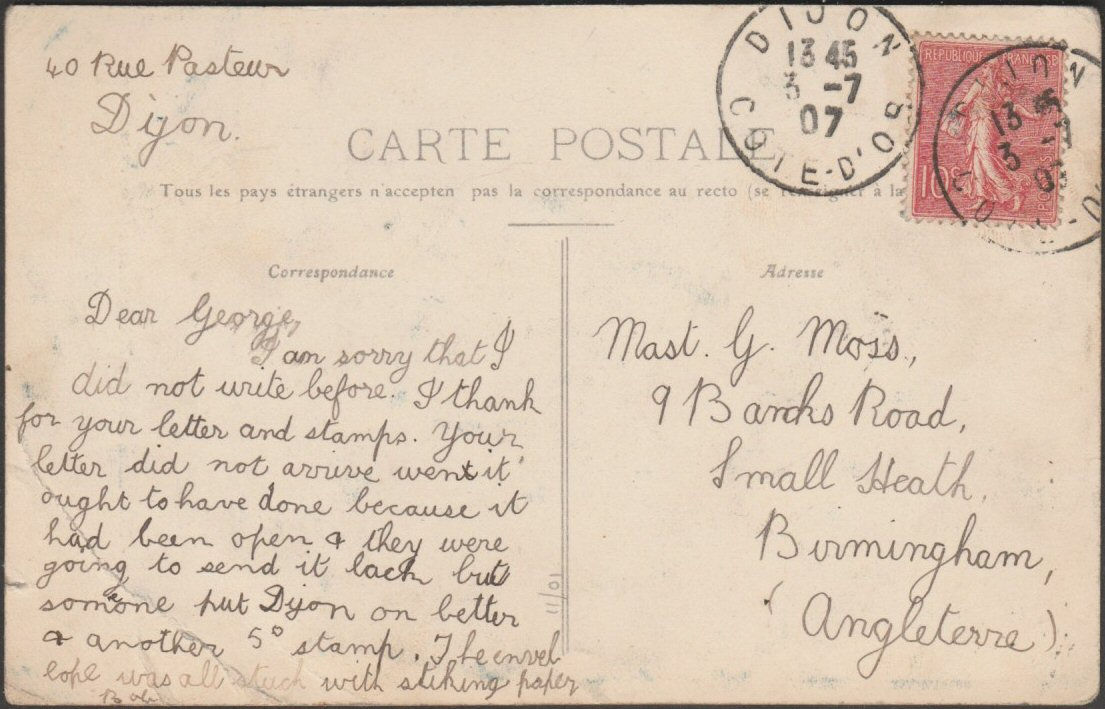 40 Rue Pasteur
Dijon.
DIJON
13 45
3 -7
07
COTE-D'OR
REPUBLIQUE FRANÇAISE
10
POSTES
13
3
CARTE POSTALE
Tous les pays étrangers n'acceptent pas la correspondance au recto (se renseigner à la
Correspondance
Dear George,
I am sorry that I
did not write before. I thank
for your letter and stamps. Your
letter did not arrive went it
ought to have done because it
had been open & they were
going to send it back but
someone put Dijon on better
& another 5° stamp. The envel
lope was all stuck with stiking paper
11/01
Adresse
Mast. G. Moss,
9 Banks Road,
Small Heath,
Birmingham,
(Angleterre)